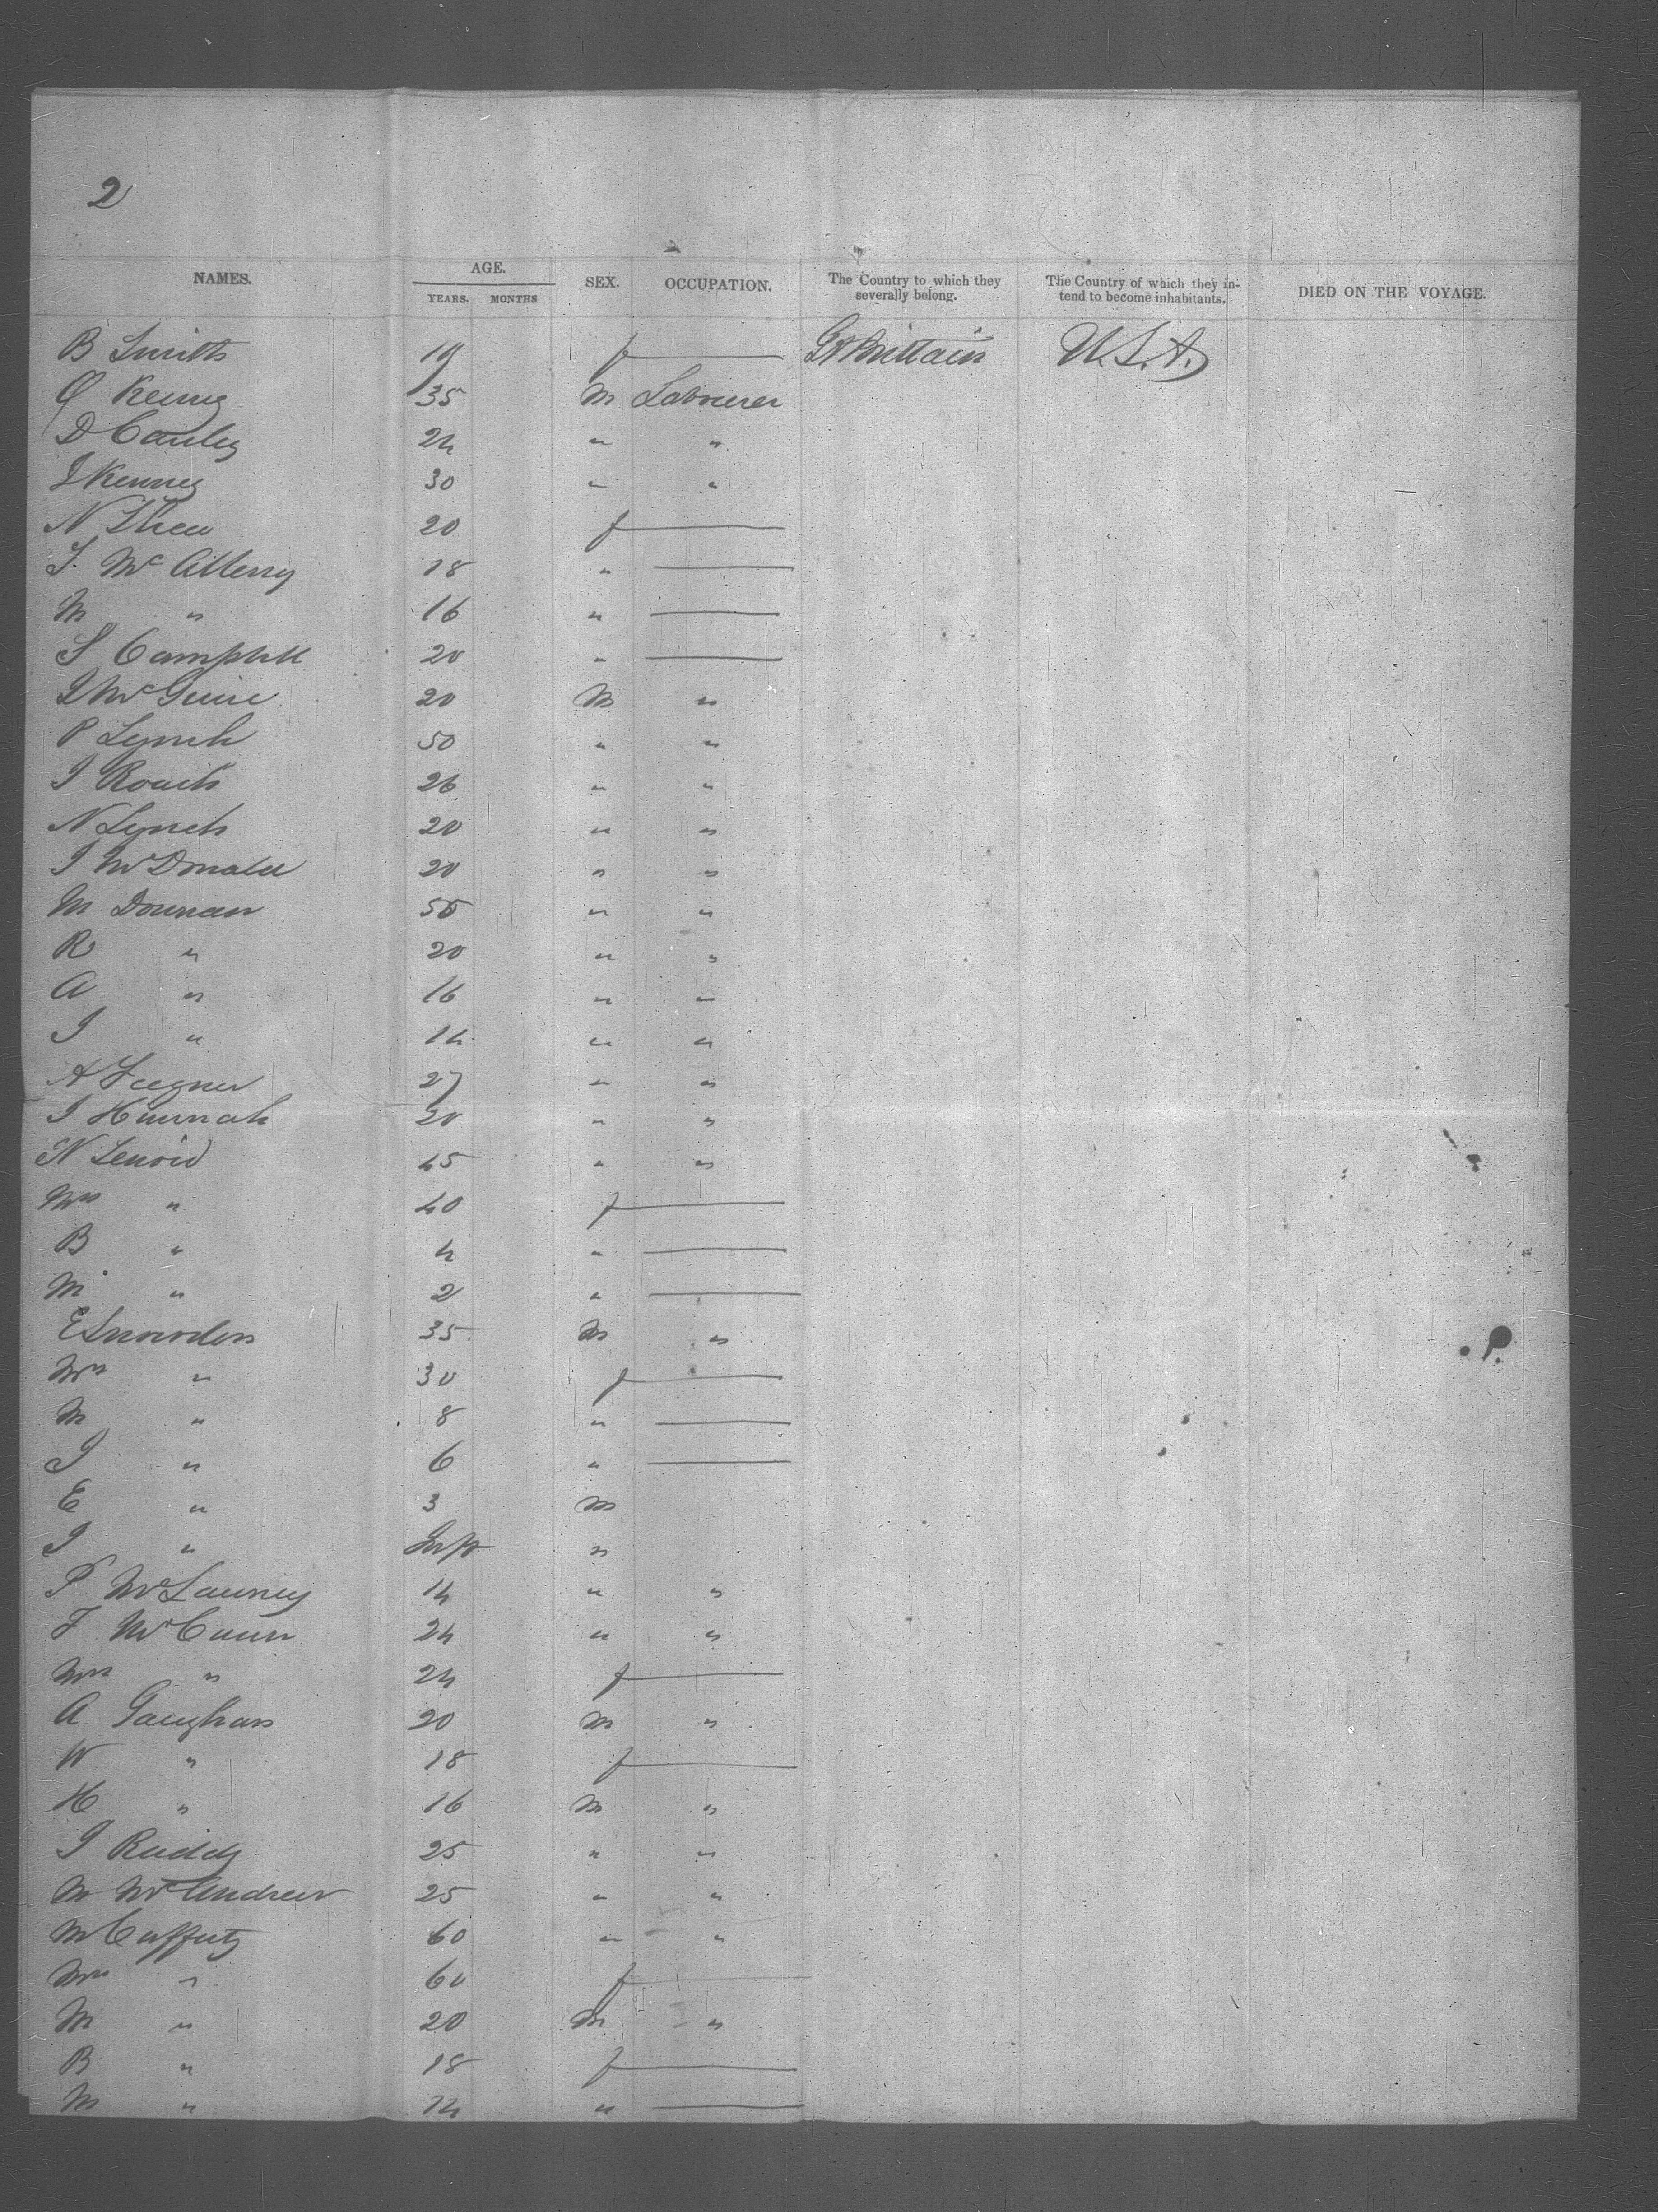 2
NAMES. AGE. YEARS. MONTHS SEX. OCCUPATION. The Country to which they severally belong. The Country of which they intend to become inhabitants. DIED ON THE VOYAGE.
B Smith 19 f — Gt Brittain U.S.A.
35 M Labourer
D Cauley 24 " "
J Kenney 30 " "
N Shea 20 f —
18 " —
M " 16 " —
S Campbell 20 " —
J McGuire 20 M "
P Lynch 50 " "
J Roach 26 " "
N Lynch 20 " "
J McDonald 20 " "
M Dounan " "
R " 20 " "
A " 16 " "
J " 14 " "
A 27 " "
J Hannah 20 " "
N 45 " "
Mrs " 40 f —
B " 4 " —
M " 2 " —
E Snowden 35 M "
Mrs " 30 f —
M " 8 " —
J " 6 " —
E " 3 M
J " Inft "
P 14 " "
F McCann 24 " "
Mrs " 24 f —
A Gaughan 20 M "
W " 18 f —
H " 16 M "
J Ruddy 25 " "
M McAndrew 25 " "
M Caffety 60 " "
Mrs " 60 f —
M " 20 M "
B " 18 f —
M " 14 " —